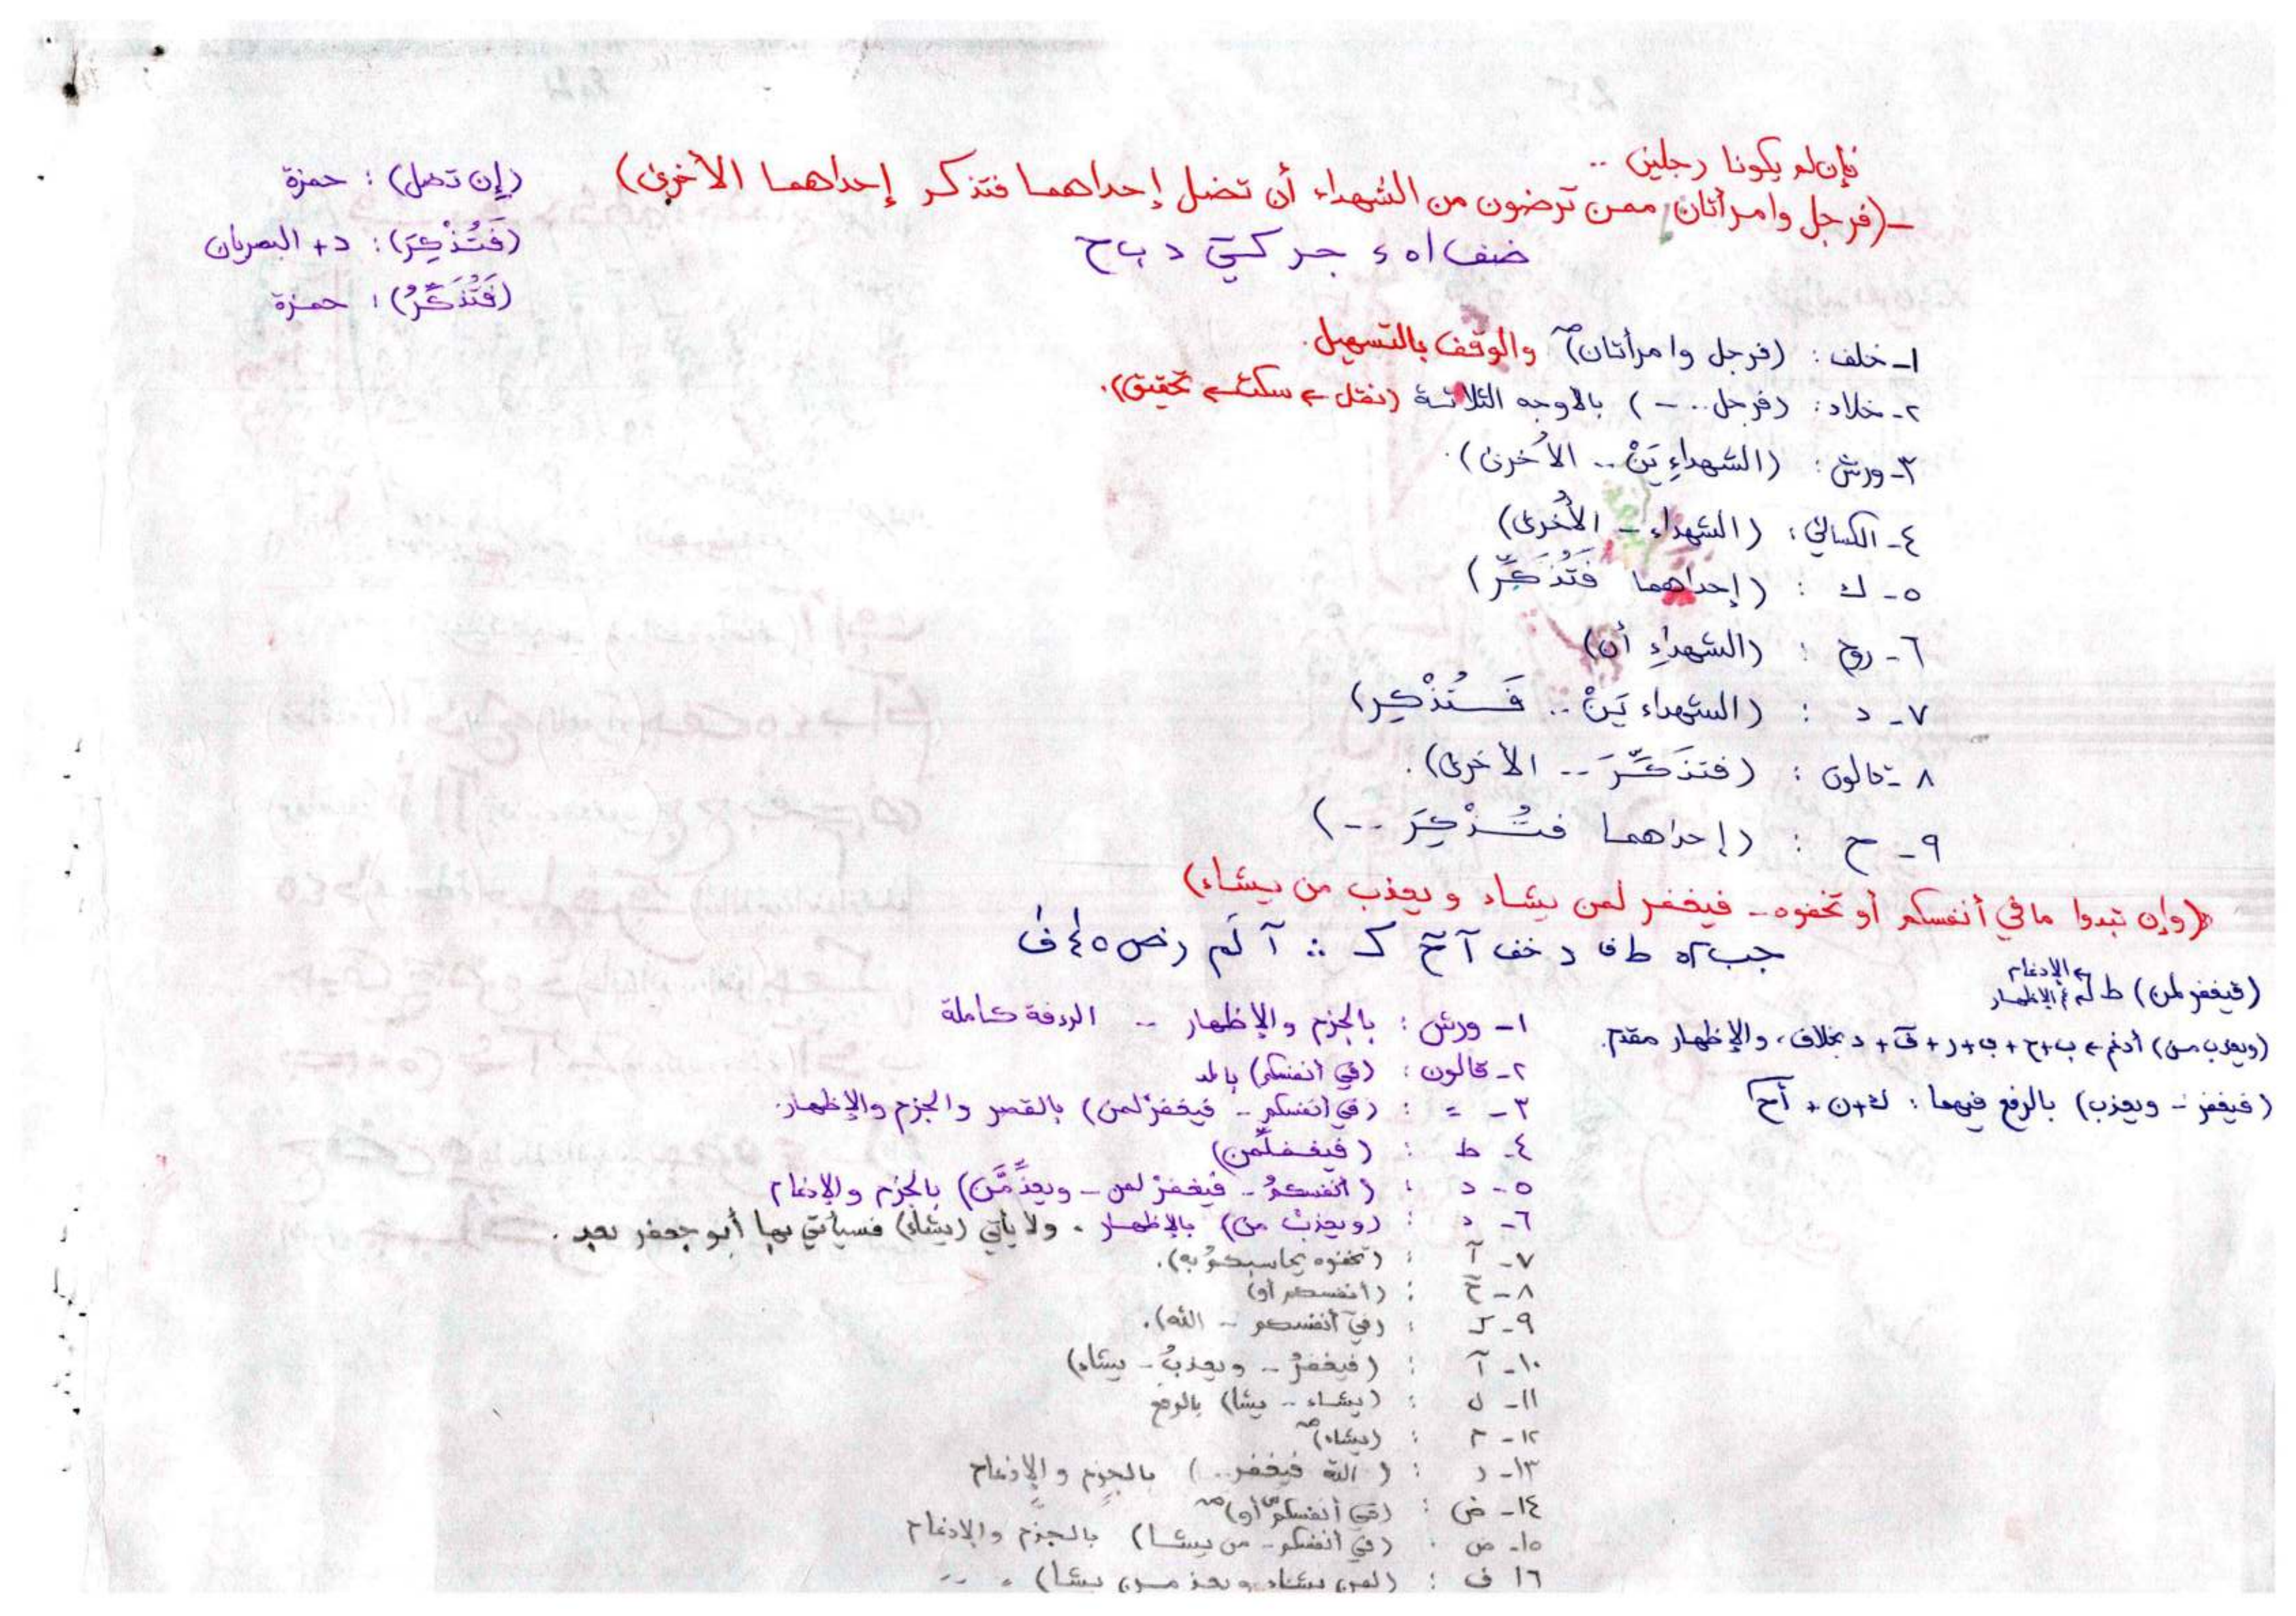 فإن لم يكونا رجلين ..
- (فرجل وامرأتان ممن ترضون من الشهداء أن تضل إحداهما فتذكر إحداهما الأخرى)
(إن تضل) : حمزة
(فَتُذْكِرَ) : د + البصريان
(فَتُذَكِّرُ) : حمزة
١- خلف : (فرجل وامرأتان) والوقف بالتسهيل.
٢- خلاد : (فرجل .. -) بالأوجه الثلاثة (نقل ← سكت ← تحقيق).
٣- ورش : (الشهداءِ يَنْ .. الأخرى).
٤- الكسائي : (الشهداء - الأُخرى)
٥- ك : (إحداهما فَتُذَكِّرَ)
٦- روح : (الشهداءِ أن)
٧- د : (الشهداء يَنْ .. فَتُذْكِر)
٨- قالون : (فتذَكِّرَ -- الأخرى).
٩- ح : (إحداهما فتُذْكِرَ --)
(وإن تبدوا ما في أنفسكم أو تخفوه - فيغفر لمن يشاء ويعذب من يشاء)
(فيغفر لمن) ط
(ويعذب من) أدغم ← ب + ح + ف + ر + ق + د بخلاف، والإظهار مقدم.
(فيغفر - ويعذب) بالرفع فيهما : ك + ن +
١- ورش : بالجزم والإظهار -- الردفة كاملة
٢- قالون : (في أنفسكم) بالمد
٣- = : (في أنفسكم - فيغفرْ لمن) بالقصر والجزم والإظهار.
٤- ط : (فيغفلّمن)
٥- د : (أنفسكمُ - فيغفرْ لمن - ويعذِّمَّن) بالجزم والإدغام
٦- د : (ويعذبْ من) بالإظهار . ولا يأتي (يشاء) فسيأتي بها أبو جعفر بعد .
٧- آ : (تخفوه يحاسبكمُ به).
٨- : (أنفسكم أو)
٩- ك : (في أنفسكم - الله).
١٠- آ : (فيغفرُ - ويعذبُ - يشاء)
١١- ل : (يشاء - يشا) بالرفع
١٢- م : (يشاء)
١٣- ر : (الله فيغفر ..) بالجزم والإدغام
١٤- ض : (في أنفسكم أو)
١٥- ض : (في أنفسكم - من يشا) بالجزم والإدغام
١٦ ف : (لمن يشاء ويعذ من يشا) . --